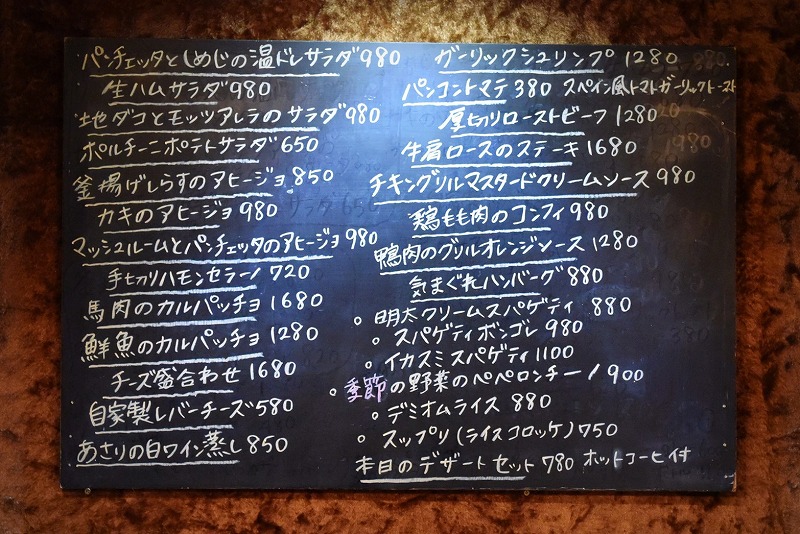 パンチェッタとしめじの温ドレサラダ980
生ハムサラダ980
地ダコとモッツァレラのサラダ980
ポルチーニポテトサラダ650
釜揚げしらすのアヒージョ850
カキのアヒージョ980
マッシュルームとパンチェッタのアヒージョ980
手切りハモンセラーノ720
馬肉のカルパッチョ1680
鮮魚のカルパッチョ1280
チーズ盛合わせ1680
自家製レバーチーズ580
あさりの白ワイン蒸し850
ガーリックシュリンプ1280
パンコントマテ380 スペイン風トマトガーリックトースト
厚切りローストビーフ1280
牛肩ロースのステーキ1680
チキングリルマスタードクリームソース980
鶏もも肉のコンフィ980
鴨肉のグリルオレンジソース1280
気まぐれハンバーグ880
○明太クリームスパゲティ 880
○スパゲティボンゴレ980
○イカスミスパゲティ1100
○季節の野菜のペペロンチーノ900
○デミオムライス 880
○スップリ(ライスコロッケ)750
本日のデザートセット780 ホットコーヒー付